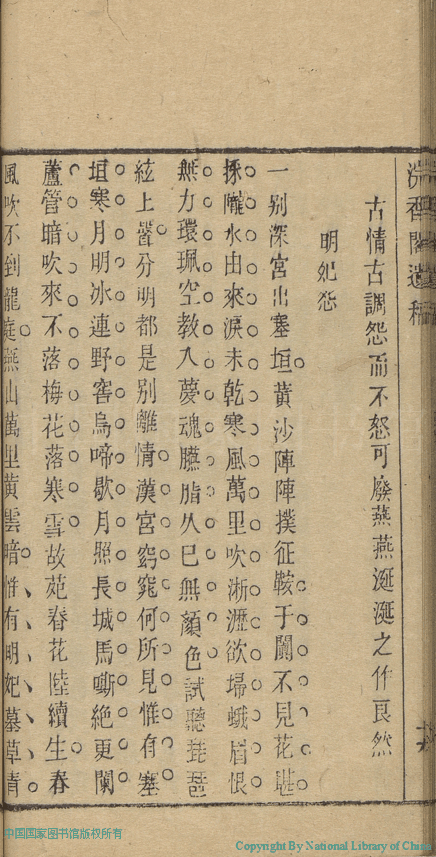 香閣遺稿
古情古調怨而不怒可廢燕燕涎涎之作良然
明妃怨
一别深宮出塞垣黄沙陣陣撲征鞍于闐不見花堪
採隴水由來淚未乾寒風萬里吹淅瀝欲埽蛾眉恨
無力環珮空教入夢魂臙脂久已無顔色試聽琵琶
絃上分明都是别離情漢宮窈窕何所見惟有塞
垣寒月明冰連野窖烏啼歇月照長城馬嘶絶更闌
蘆管暗吹來不落梅花落寒雪故苑春花陸續生春
風吹不到龍庭燕山萬里黄雲暗惟有明妃墓草青
中国国家图书馆版权所有
Copyright By National Library of China